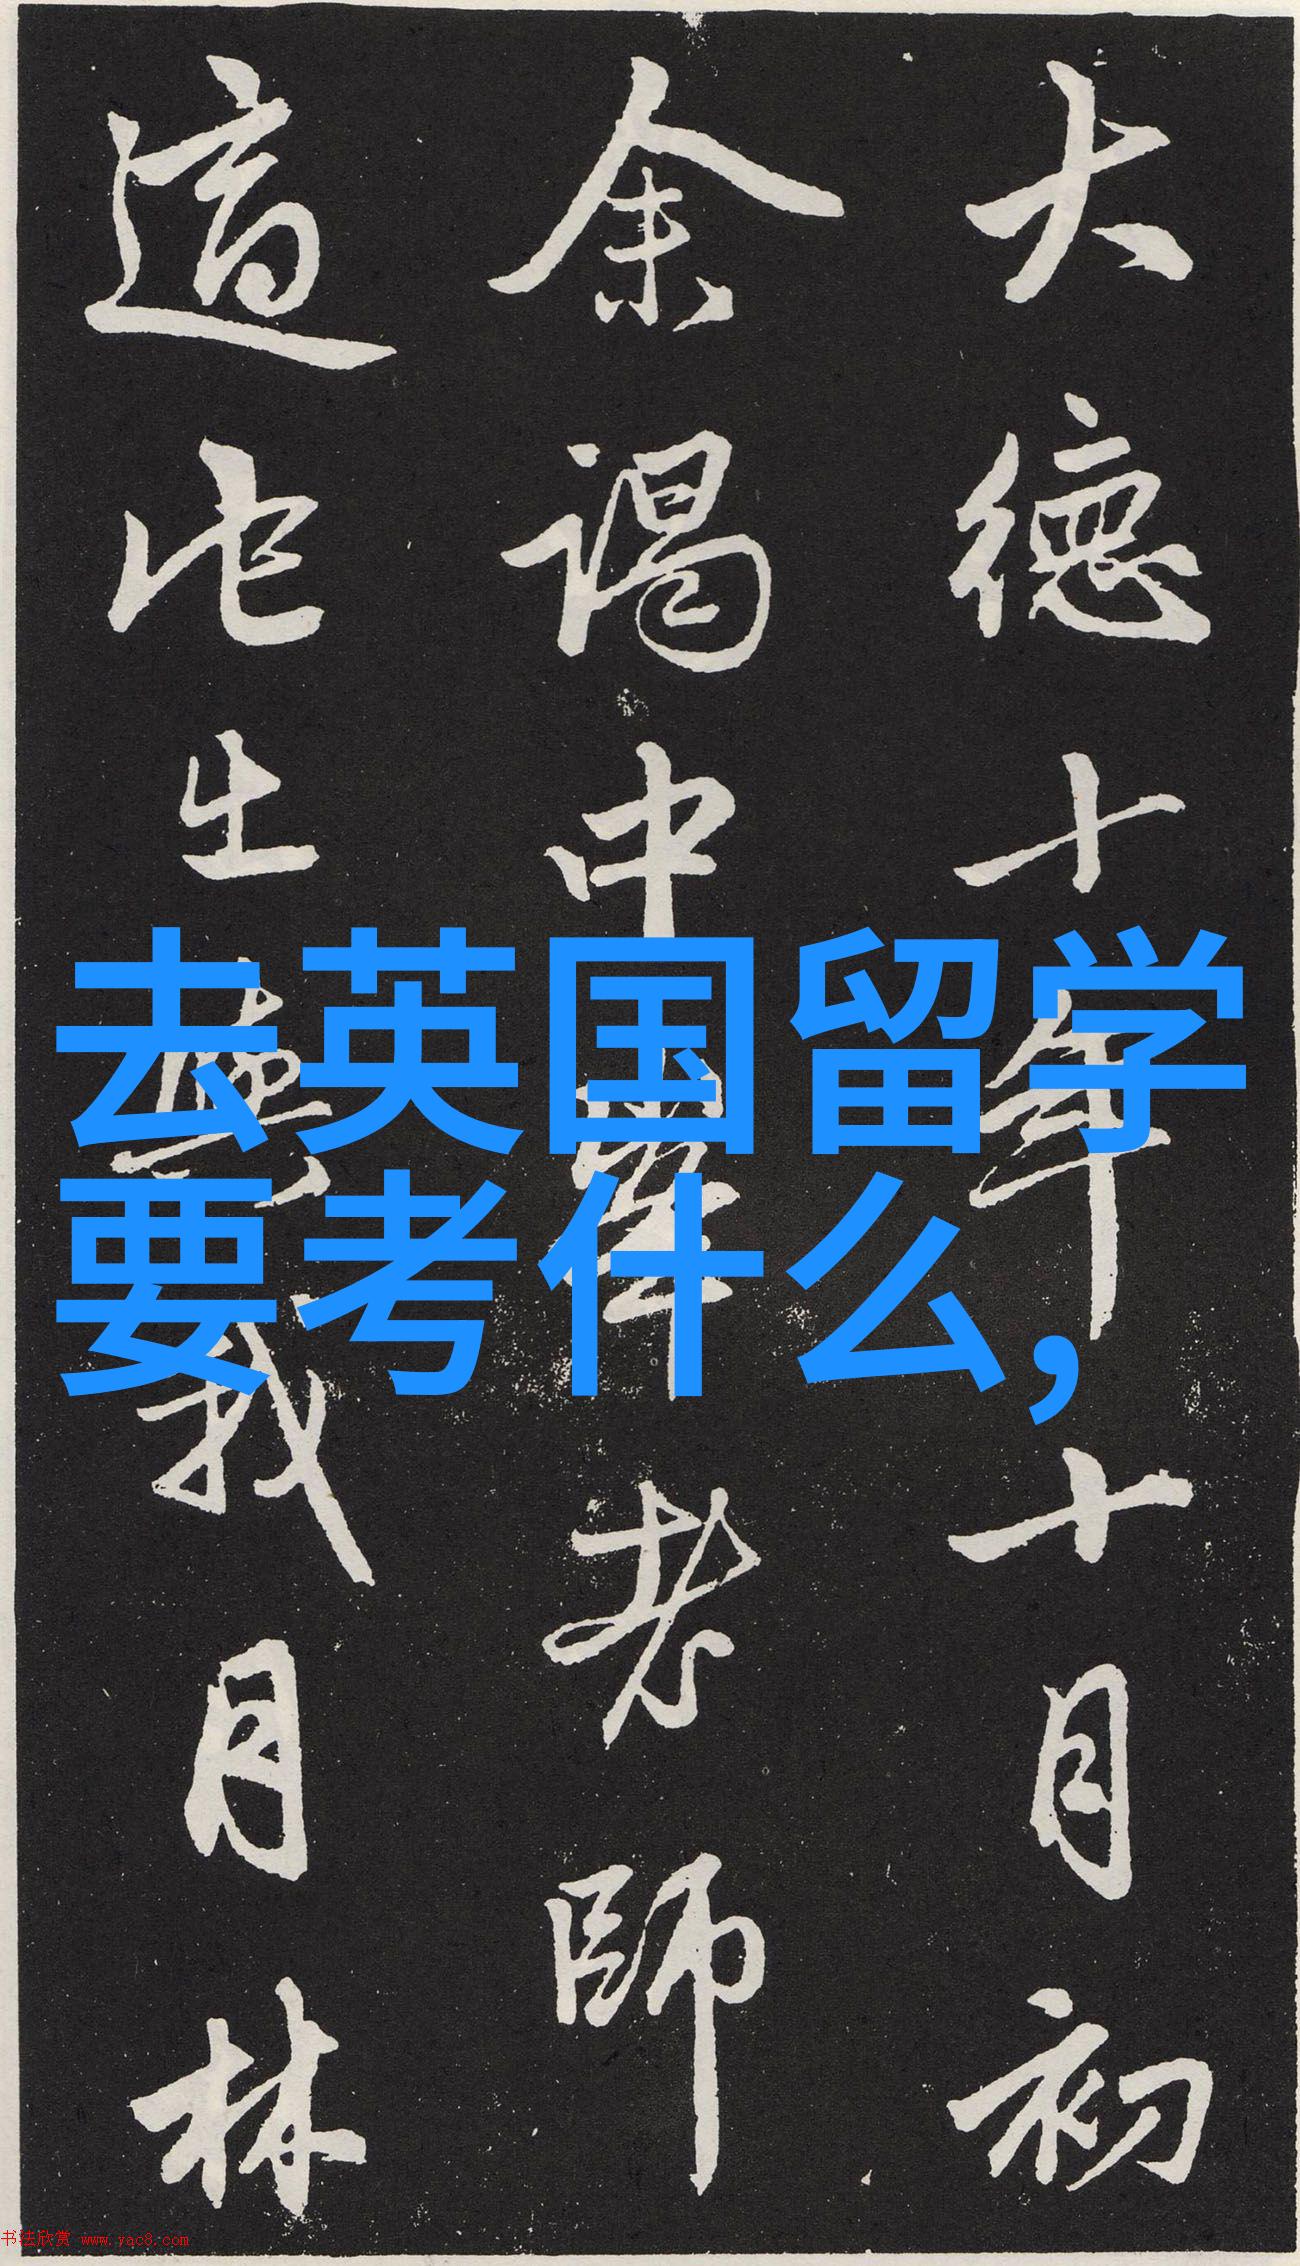 大德十年十月初
余謁中老師
此出我月林
去英国留学
要考什么,
书法欣赏 www.yac8.com